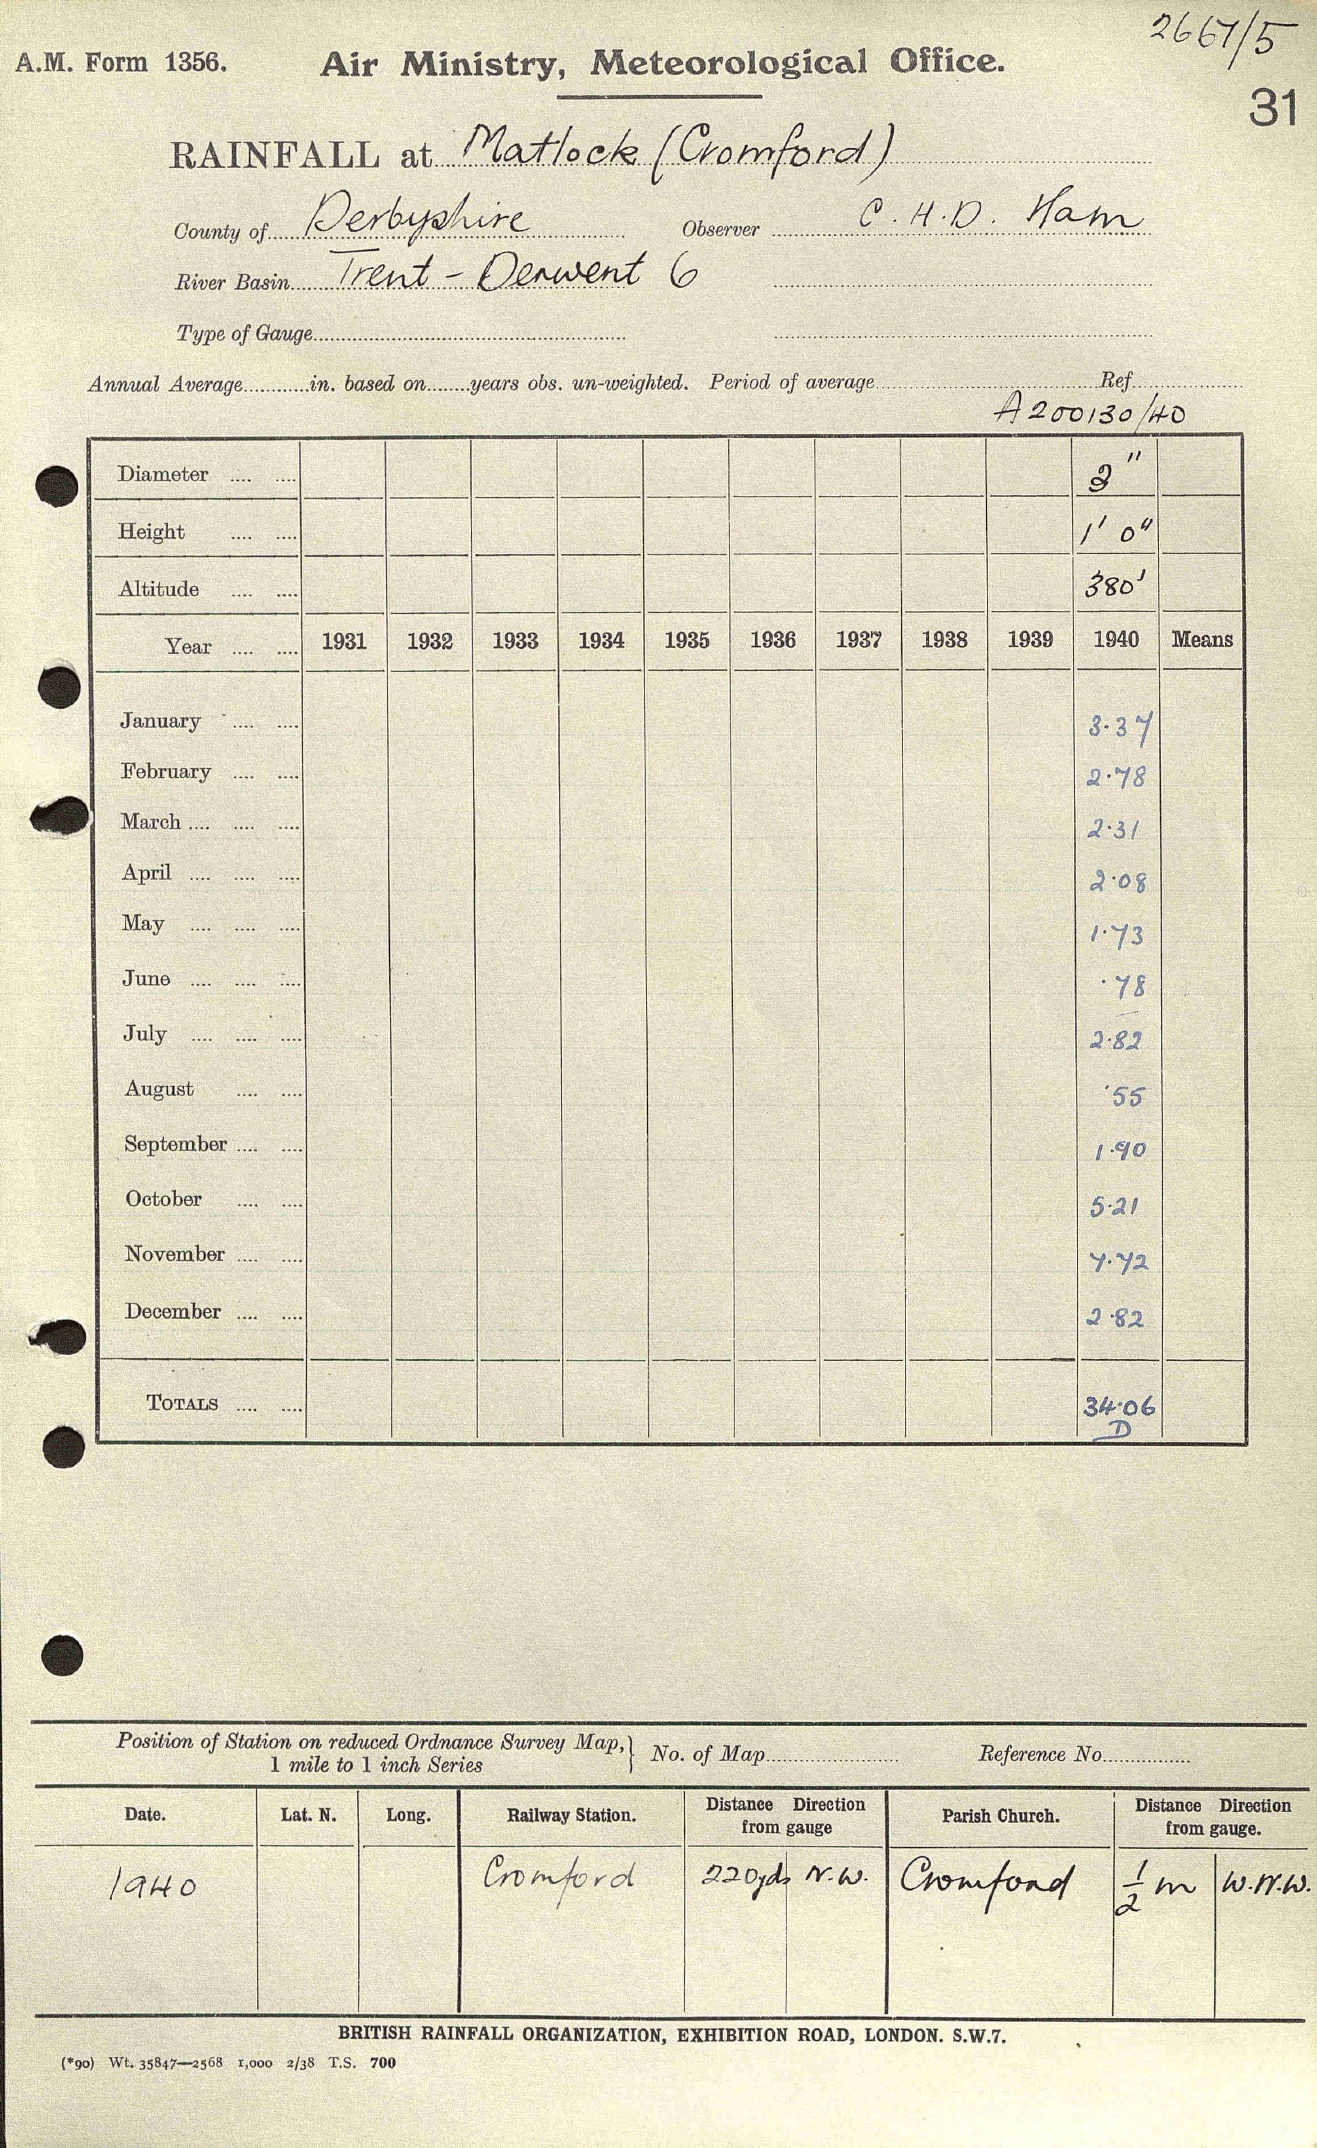 2667/5
A.M. Form 1356. Air Ministry, Meteorological Office.
31
RAINFALL at Matlock (Cromford)
County of Derbyshire Observer C.H.D. Ham
River Basin Trent - Derwent 6
Type of Gauge
Annual Average in. based on years obs. un-weighted. Period of average Ref
A200130/40
Diameter
Height 1' 0"
Altitude 380'
Year 1931 1932 1933 1934 1935 1936 1937 1938 1939 1940 Means
January 3.37
February 2.78
March 2.31
April 2.08
May 1.73
June .78
July 2.82
August .55
September 1.90
October 5.21
November 7.72
December 2.82
TOTALS 34.06
D
Position of Station on reduced Ordnance Survey Map,} No. of Map Reference No
1 mile to 1 inch Series
Date. Lat. N. Long. Railway Station. Distance Direction from gauge Parish Church. Distance Direction from gauge.
1940 Cromford 220yds N.W. Cromford 1/2 m W.N.W.
BRITISH RAINFALL ORGANIZATION, EXHIBITION ROAD, LONDON. S.W.7.
(*90) Wt. 35847—2568 1,000 2/38 T.S. 700